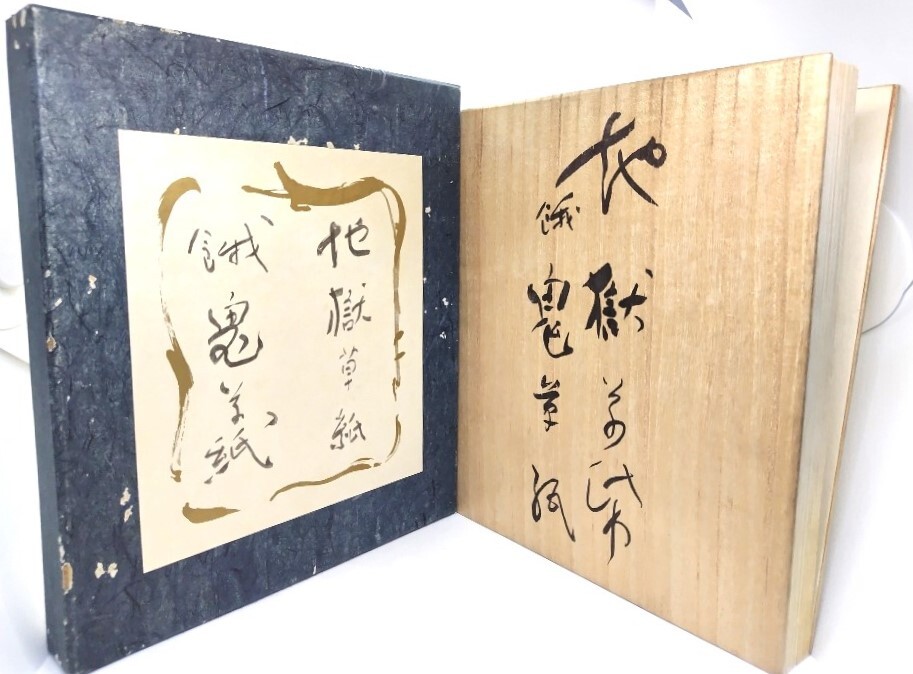 地獄草紙
餓鬼草紙
地獄草帋
餓鬼草紙